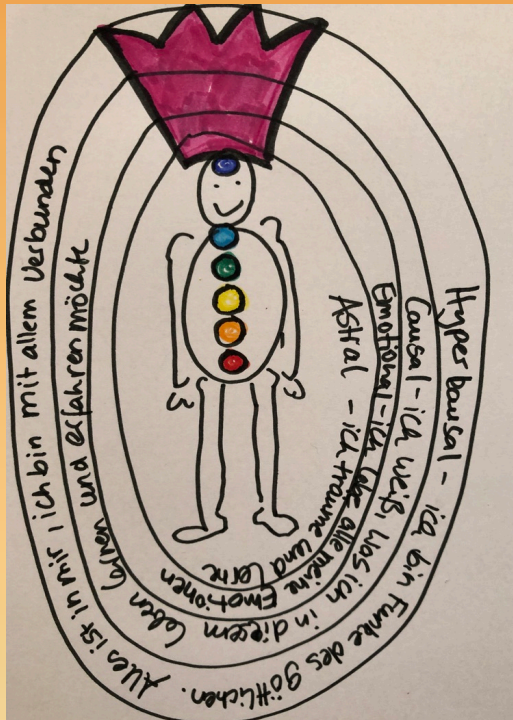 Hyperkausal - ich bin Funke des göttlichen. Alles ist in mir / ich bin mit allem Verbunden
Causal - ich weiß, was ich in diesem Leben lernen und erfahren möchte
Emotional - ich lebe alle meine Emotionen
Astral - ich träume und lerne